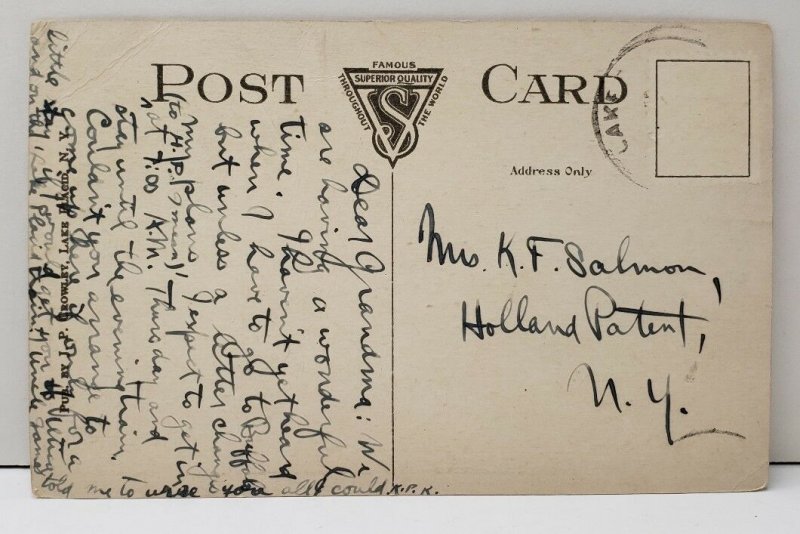 POST CARD
FAMOUS
SUPERIOR QUALITY
THROUGHOUT THE WORLD
S
LAKE
Address Only
Dear Grandma: We
are having a wonderful
time. I haven't yet heard
when I have to go to Buffalo
but unless a letter changes
my plans, I expect to get in
(to H.P. I mean),
at 7:00 A.M. Thursday and
stay until the evening train.
Couldn't you arrange to
come up here for a
little
and
told me to write you all could K.P.K.
PUB. BY P. CROWLEY, LAKE PLACID, N. Y.
Mrs. K. F. Salmon,
Holland Patent,
N. Y.